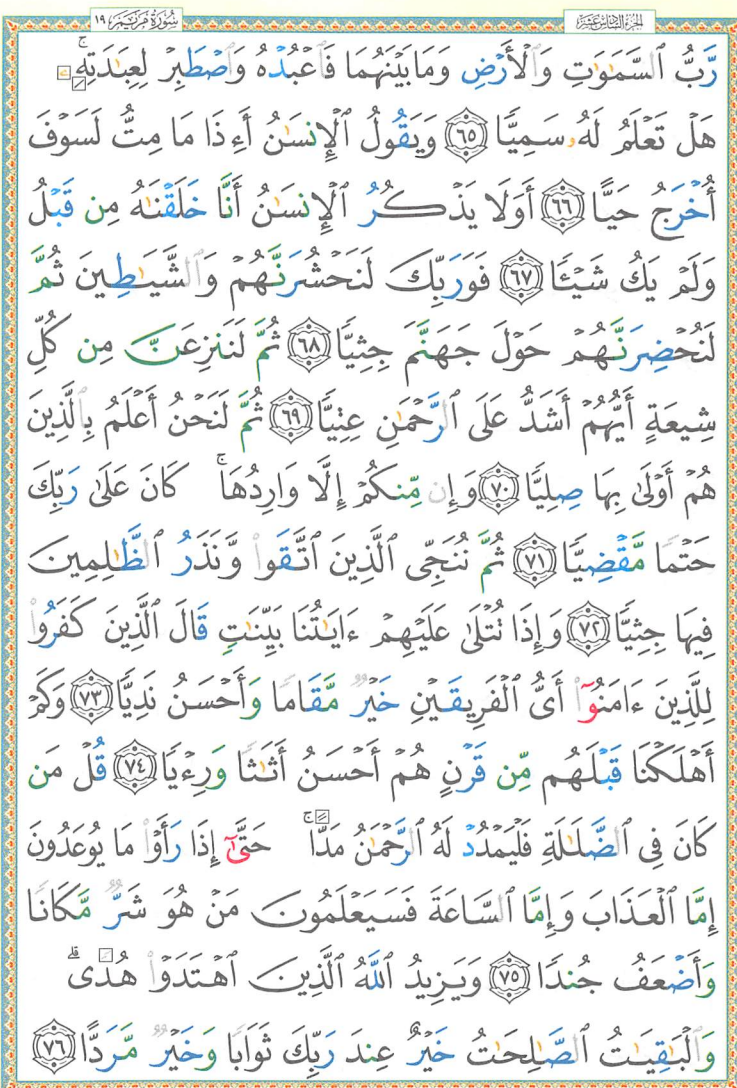 سُورَةُ مَرْيَمَ ١٩
الجزء السادس عشر
رَّبُّ ٱلسَّمَٰوَٰتِ وَٱلْأَرْضِ وَمَا بَيْنَهُمَا فَٱعْبُدْهُ وَٱصْطَبِرْ لِعِبَٰدَتِهِۦۚ
هَلْ تَعْلَمُ لَهُۥ سَمِيًّا ٦٥ وَيَقُولُ ٱلْإِنسَٰنُ أَءِذَا مَا مِتُّ لَسَوْفَ
أُخْرَجُ حَيًّا ٦٦ أَوَلَا يَذْكُرُ ٱلْإِنسَٰنُ أَنَّا خَلَقْنَٰهُ مِن قَبْلُ
وَلَمْ يَكُ شَيْـًٔا ٦٧ فَوَرَبِّكَ لَنَحْشُرَنَّهُمْ وَٱلشَّيَٰطِينَ ثُمَّ
لَنُحْضِرَنَّهُمْ حَوْلَ جَهَنَّمَ جِثِيًّا ٦٨ ثُمَّ لَنَنزِعَنَّ مِن كُلِّ
شِيعَةٍ أَيُّهُمْ أَشَدُّ عَلَى ٱلرَّحْمَٰنِ عِتِيًّا ٦٩ ثُمَّ لَنَحْنُ أَعْلَمُ بِٱلَّذِينَ
هُمْ أَوْلَىٰ بِهَا صِلِيًّا ٧٠ وَإِن مِّنكُمْ إِلَّا وَارِدُهَاۚ كَانَ عَلَىٰ رَبِّكَ
حَتْمًا مَّقْضِيًّا ٧١ ثُمَّ نُنَجِّى ٱلَّذِينَ ٱتَّقَوا۟ وَّنَذَرُ ٱلظَّٰلِمِينَ
فِيهَا جِثِيًّا ٧٢ وَإِذَا تُتْلَىٰ عَلَيْهِمْ ءَايَٰتُنَا بَيِّنَٰتٍ قَالَ ٱلَّذِينَ كَفَرُوا۟
لِلَّذِينَ ءَامَنُوٓا۟ أَىُّ ٱلْفَرِيقَيْنِ خَيْرٌ مَّقَامًا وَأَحْسَنُ نَدِيًّا ٧٣ وَكَمْ
أَهْلَكْنَا قَبْلَهُم مِّن قَرْنٍ هُمْ أَحْسَنُ أَثَٰثًا وَرِءْيًا ٧٤ قُلْ مَن
كَانَ فِى ٱلضَّلَٰلَةِ فَلْيَمْدُدْ لَهُ ٱلرَّحْمَٰنُ مَدًّاۚ حَتَّىٰٓ إِذَا رَأَوْا۟ مَا يُوعَدُونَ
إِمَّا ٱلْعَذَابَ وَإِمَّا ٱلسَّاعَةَ فَسَيَعْلَمُونَ مَنْ هُوَ شَرٌّ مَّكَانًا
وَأَضْعَفُ جُندًا ٧٥ وَيَزِيدُ ٱللَّهُ ٱلَّذِينَ ٱهْتَدَوْا۟ هُدًىۗ
وَٱلْبَٰقِيَٰتُ ٱلصَّٰلِحَٰتُ خَيْرٌ عِندَ رَبِّكَ ثَوَابًا وَخَيْرٌ مَّرَدًّا ٧٦